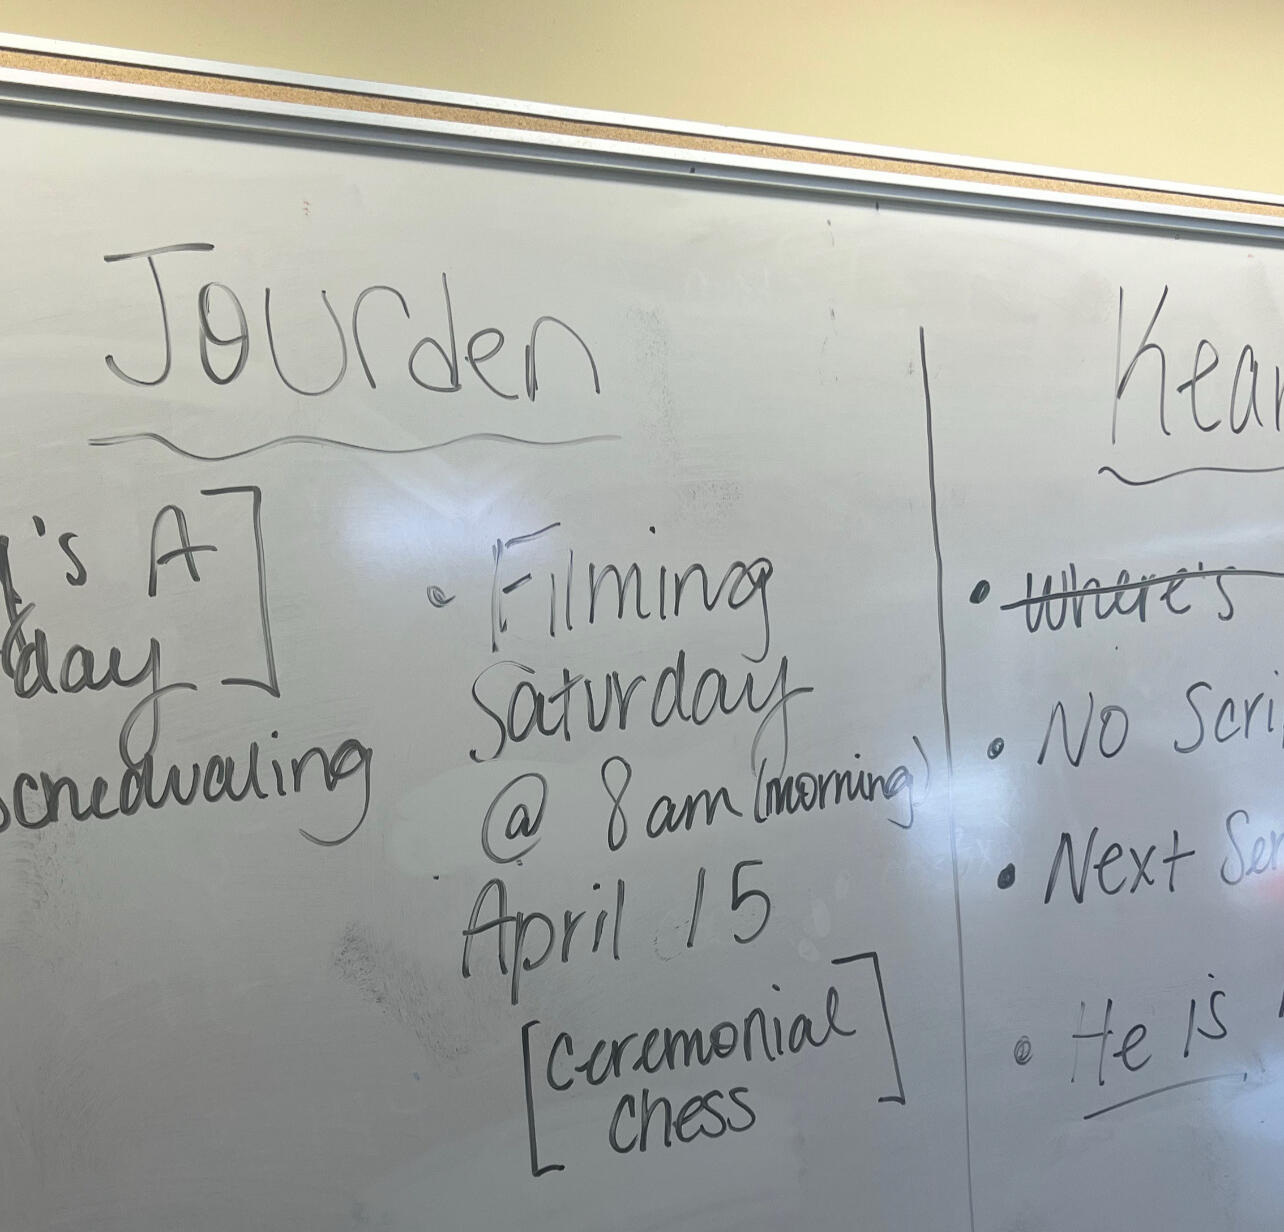 Jourden
's A
day
scheduling
• Filming
Saturday
@ 8am (morning)
April 15
[Ceremonial
chess]
Kear
• Where's
• No Scri
• Next Ser
• He is